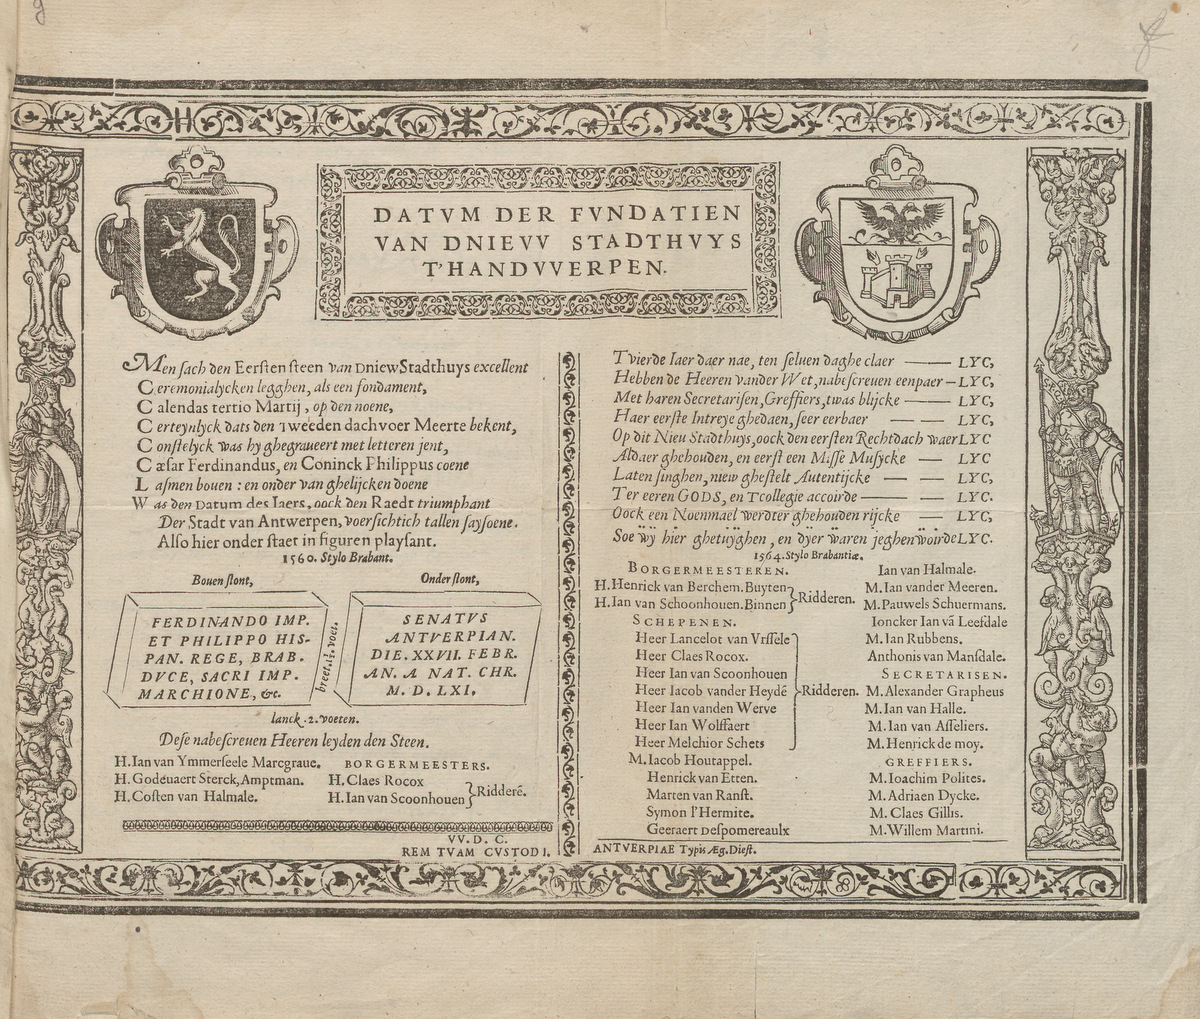 DATVM DER FVNDATIEN
VAN DNIEVV STADTHVYS
T'HANDVVERPEN.
Men sach den Eersten steen van Dniew Stadthuys excellent
Ceremonialycken legghen, als een fondament,
Calendas tertio Martij, op den noene,
Certeynlyck dats den tweeden dach voer Meerte bekent,
Constelyck was hy ghegraueert met letteren jent,
Cæsar Ferdinandus, en Coninck Philippus coene
Lasmen bouen: en onder van ghelijcken doene
Was den Datum des Iaers, oock den Raedt triumphant
Der Stadt van Antwerpen, voersichtich tallen saysoene.
Also hier onder staet in figuren playsant.
1560. Stylo Brabant.
Bouen stont,
Onder stont,
FERDINANDO IMP.
ET PHILIPPO HIS-
PAN. REGE, BRAB.
DVCE, SACRI IMP.
MARCHIONE, &c.
breet.1½.voet.
SENATVS
ANTVERPIAN.
DIE. XXVII. FEBR.
AN. A NAT. CHR.
M. D. LXI.
lanck .2. voeten.
Dese nabescreuen Heeren leyden den Steen.
H. Ian van Ymmerseele Marcgraue.
H. Godeuaert Sterck, Amptman.
H. Costen van Halmale.
BORGERMEESTERS.
H. Claes Rocox
H. Ian van Scoonhouen
Ridderē.
VV. D. C.
REM TVAM CVSTODI.
T vierde Iaer daer nae, ten seluen daghe claer —— LYC,
Hebben de Heeren vander Wet, nabescreuen eenpaer — LYC,
Met haren Secretarisen, Greffiers, twas blijcke —— LYC,
Haer eerste Intreye ghedaen, seer eerbaer — — LYC,
Op dit Nieu Stadthuys, oock den eersten Rechtdach waer LYC
Aldaer ghehouden, en eerst een Misse Musycke — LYC
Laten singhen, niew ghestelt Autentijcke — — LYC,
Ter eeren GODS, en Tcollegie accoirde —— — LYC.
Oock een Noenmael werdter ghehouden rijcke — LYC,
Soe wÿ hier ghetuÿghen, en dÿer waren jeghenwoirde LYC.
1564. Stylo Brabantiæ.
BORGERMEESTEREN.
H. Henrick van Berchem. Buyten
H. Ian van Schoonhouen. Binnen
Ridderen.
SCHEPENEN.
Heer Lancelot van Vrssele
Heer Claes Rocox.
Heer Ian van Scoonhouen
Heer Iacob vander Heydē
Heer Ian vanden Werve
Heer Ian Wolffaert
Heer Melchior Schets
Ridderen.
M. Iacob Houtappel.
Henrick van Etten.
Marten van Ranst.
Symon l'Hermite.
Geeraert Despomereaulx
Ian van Halmale.
M. Ian vander Meeren.
M. Pauwels Schuermans.
Ioncker Ian vā Leefdale
M. Ian Rubbens.
Anthonis van Mansdale.
SECRETARISEN.
M. Alexander Grapheus
M. Ian van Halle.
M. Ian van Asseliers.
M. Henrick de moy.
GREFFIERS.
M. Ioachim Polites.
M. Adriaen Dycke.
M. Claes Gillis.
M. Willem Martini.
ANTVERPIAE Typis Æg. Diest.